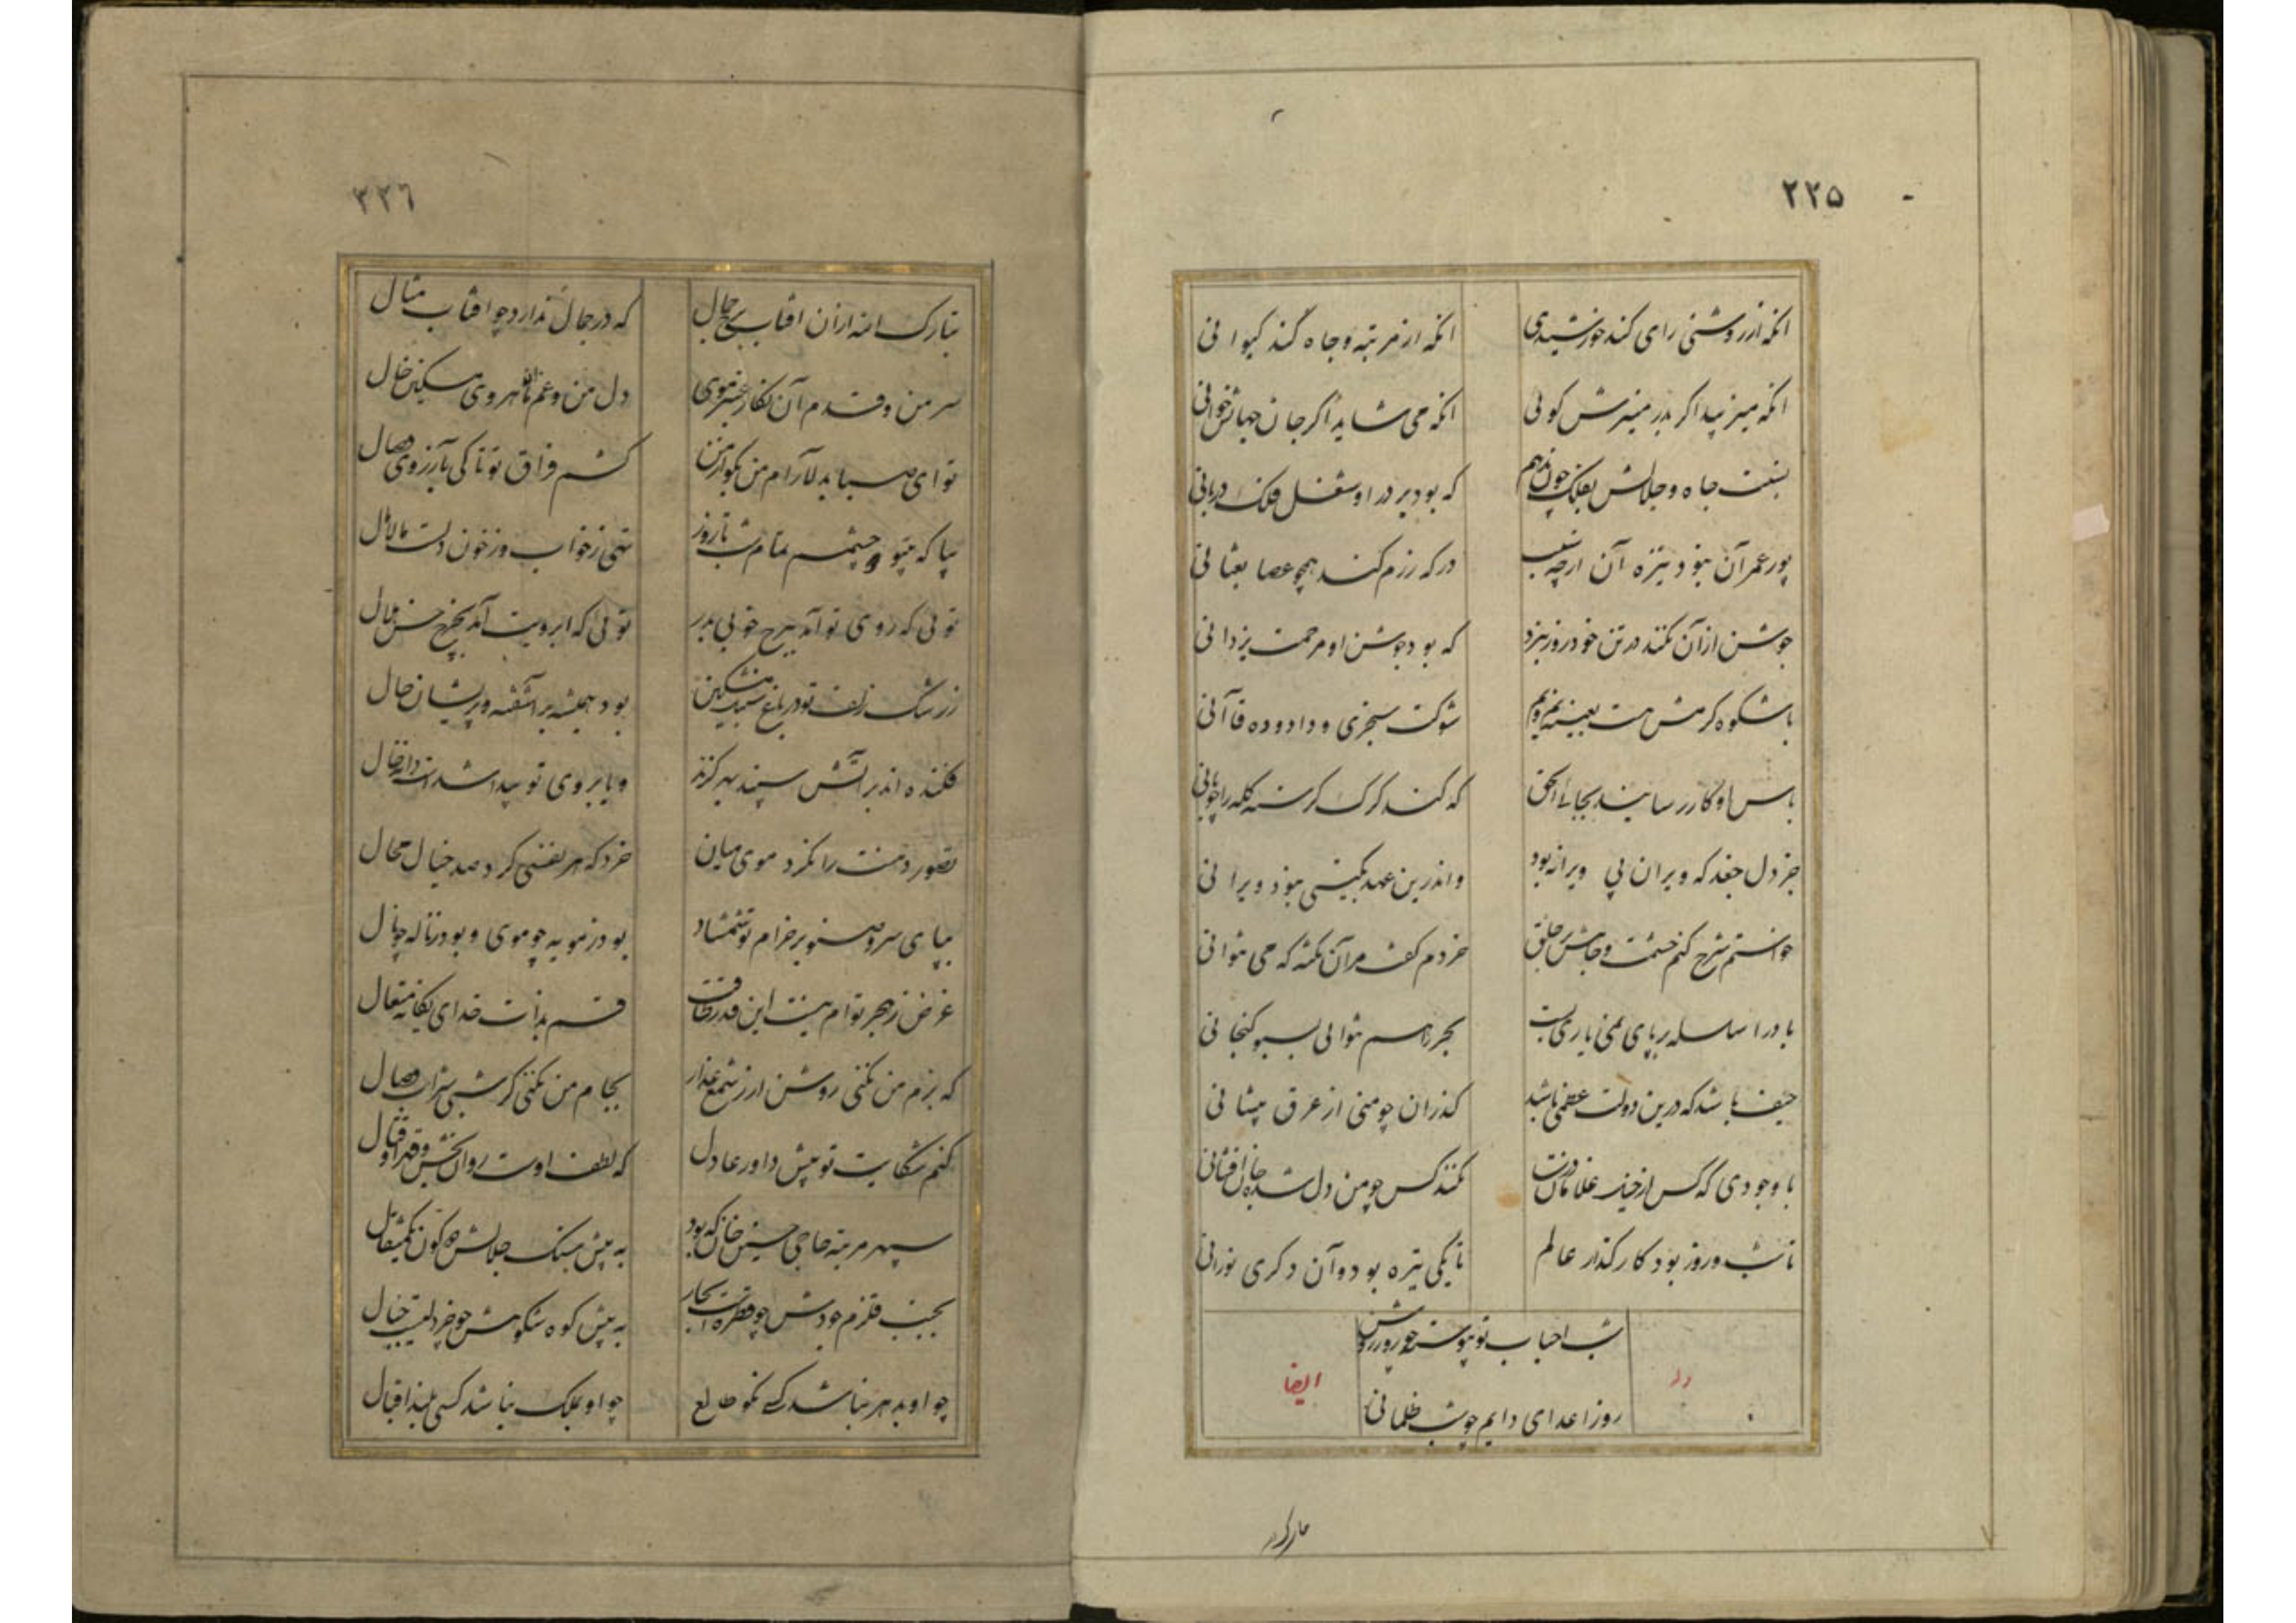 ۲۲۵
انکه از روشنی رای کند خورشیدی انکه از مرتبه و جاه کند کیوانی
انکه میزیبد اکر بدر منیرش کوئی انکه می شاید اکر جان جهانش خوانی
نسبت جاه و جلالش بفلک چون ندهم که بود بر در او شغل فلک دربانی
پور عمران نبود نیزه آن ارچه بشب در که رزم کند همچو عصا ثعبانی
جوشن از آن نکند در تن خود روز نبرد که بود جوشن او مرحمت یزدانی
با شکوه کرمش هست ببزم و شوکت سنجری و داد و ده قاآنی
باس او کار رسانید بجائی الحق که کند کرک کرسنه کله را چوپانی
جز دل جغد که ویران پی ویرانه بود واندرین عهد بکیتی نبود ویرانی
خواستم شرح کنم حشمت و جاهش بر خلق خردم کفت مرآن نکته که می نتوانی
باد را سلسله بر پای نمی یاری بست بحر را هم نتوانی بسبو کنجانی
حیف باشد که درین دولت عظمی باشد کذران چو منی از عرق پیشانی
با وجودی که کس از خیل غلامان درت نکند کس چو من دل شده جان افشانی
تا شب و روز بود کارکذار عالم تا یکی تیره بود و آن دکری نورانی
شب احباب تو پیوسته چو روز روشن
روز اعدای دایم چو شب ظلمانی
وله ایضا
تبارک
۲۲۶
تبارک الله از آن افتاب برج جمال که در جمال ندارد چو افتاب مثال
سر من و قدم آن نکار عنبر موی دل من و غم آن ماهروی مسکین خال
تو ای صبا به دلارام من بکو از من کشم فراق تو تا کی بآرزوی وصال
بیا که بیتو دو چشمم تمام شب تا روز تهی ز خواب و ز خون دلست مالامال
توئی که روی تو آمد ببرج خوبی بدر توئی که ابرویت آمد بچرخ حسن هلال
ز رشک زلف تو در باغ سنبل مشکین بود همیشه بر آشفته و پریشان حال
فکنده اند بر آتش سپند بهر کزند و یا بروی تو پیدا شده است دانه خال
تصور دهنت را نکرد و موی میان خرد که هر نفسی کرد صد خیال محال
بپای سرو و صنوبر خرام تو شمشاد بود ز مویه چو موی و بود ز ناله چو نال
غرض ز هجر توام نیست این قدر طاقت قسم بذات خدای یکانه متعال
که بزم من نکنی روشن ار ز شمع عذار بجام من نکنی کر شبی شراب وصال
کنم شکایت تو پیش داور عادل که لطف اوست روان بخش و قهر او قتال
سپهر مرتبه حاجی حسین خان که بود به پیش سنک جلالش دو کون یکمثقال
بجنب قلزم جودش چو قطره است بحار به پیش کوه شکوهش چو خردلیست جبال
چو او بدهر نباشد کسی نکو طالع چو او بملک نباشد کسی بلند اقبال